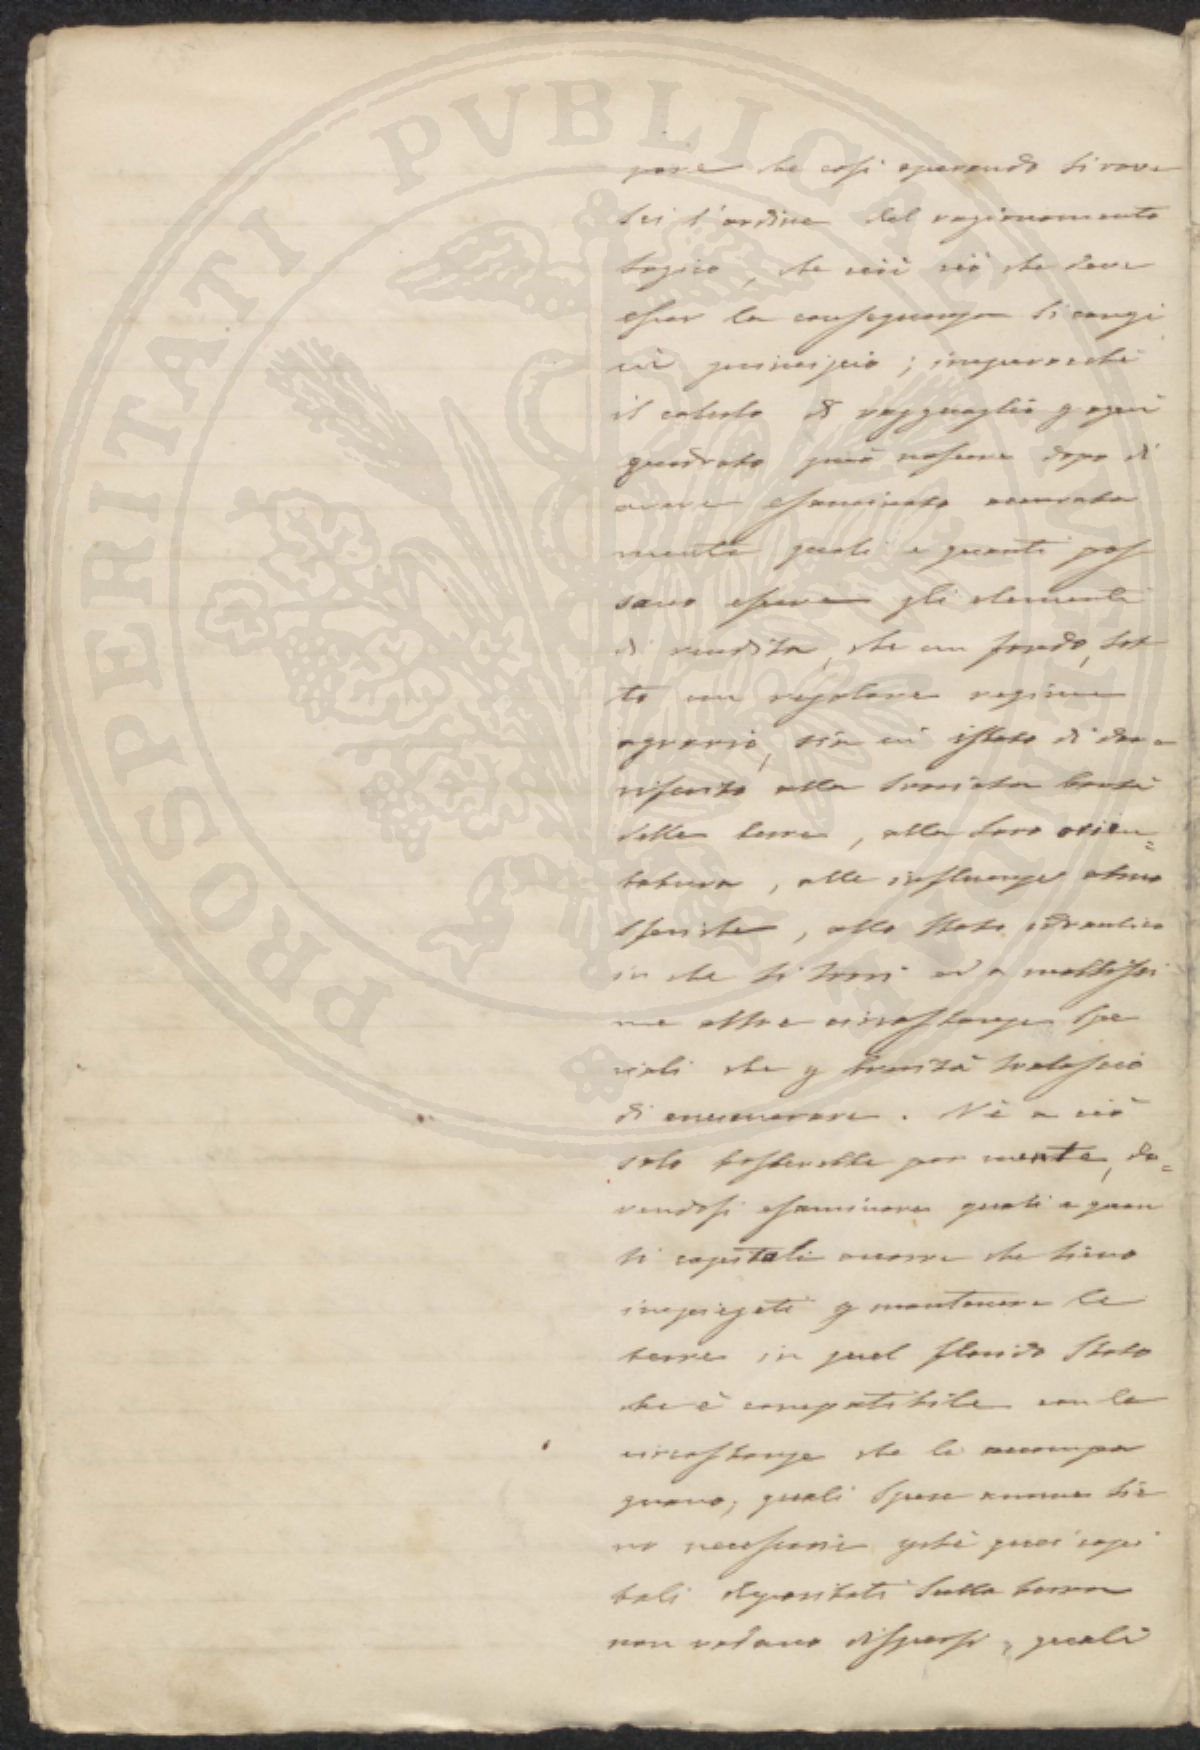 PROSPERITATI PVBLICAE AVGENDAE
pare che così operando si rove
sci l'ordine del ragionamento
logico, che cioè ciò che deve
esser la conseguenza si cangi
in principio; imperocchè
il calcolo di ragguaglio p ogni
quadrato può nascere dopo di
avere esaminato accurata
mente quali e quanti pos
sano essere gli elementi
di rendita, che un fondo, sot
to un regolare regime
agrario, sia in istato di dare
riferito alla svariata bontà
delle terre, alla loro orien=
tatura, alle influenze atmo
sferiche, allo stato idraulico
in che si trovi ed a moltissi
me altre circostanze spe
ciali che p brevità tralascio
di enumerare. Nè a ciò
solo basterebbe por mente, do=
vendosi esaminare quali e quan
ti capitali occorre che sieno
impiegati p mantenere le
terre in quel florido stato
che è compatibile con le
circostanze che le accompa
gnano; quali spese annue sie
no necessarie pchè quei capi
tali depositati sulla terra
non vadano dispersi, quali